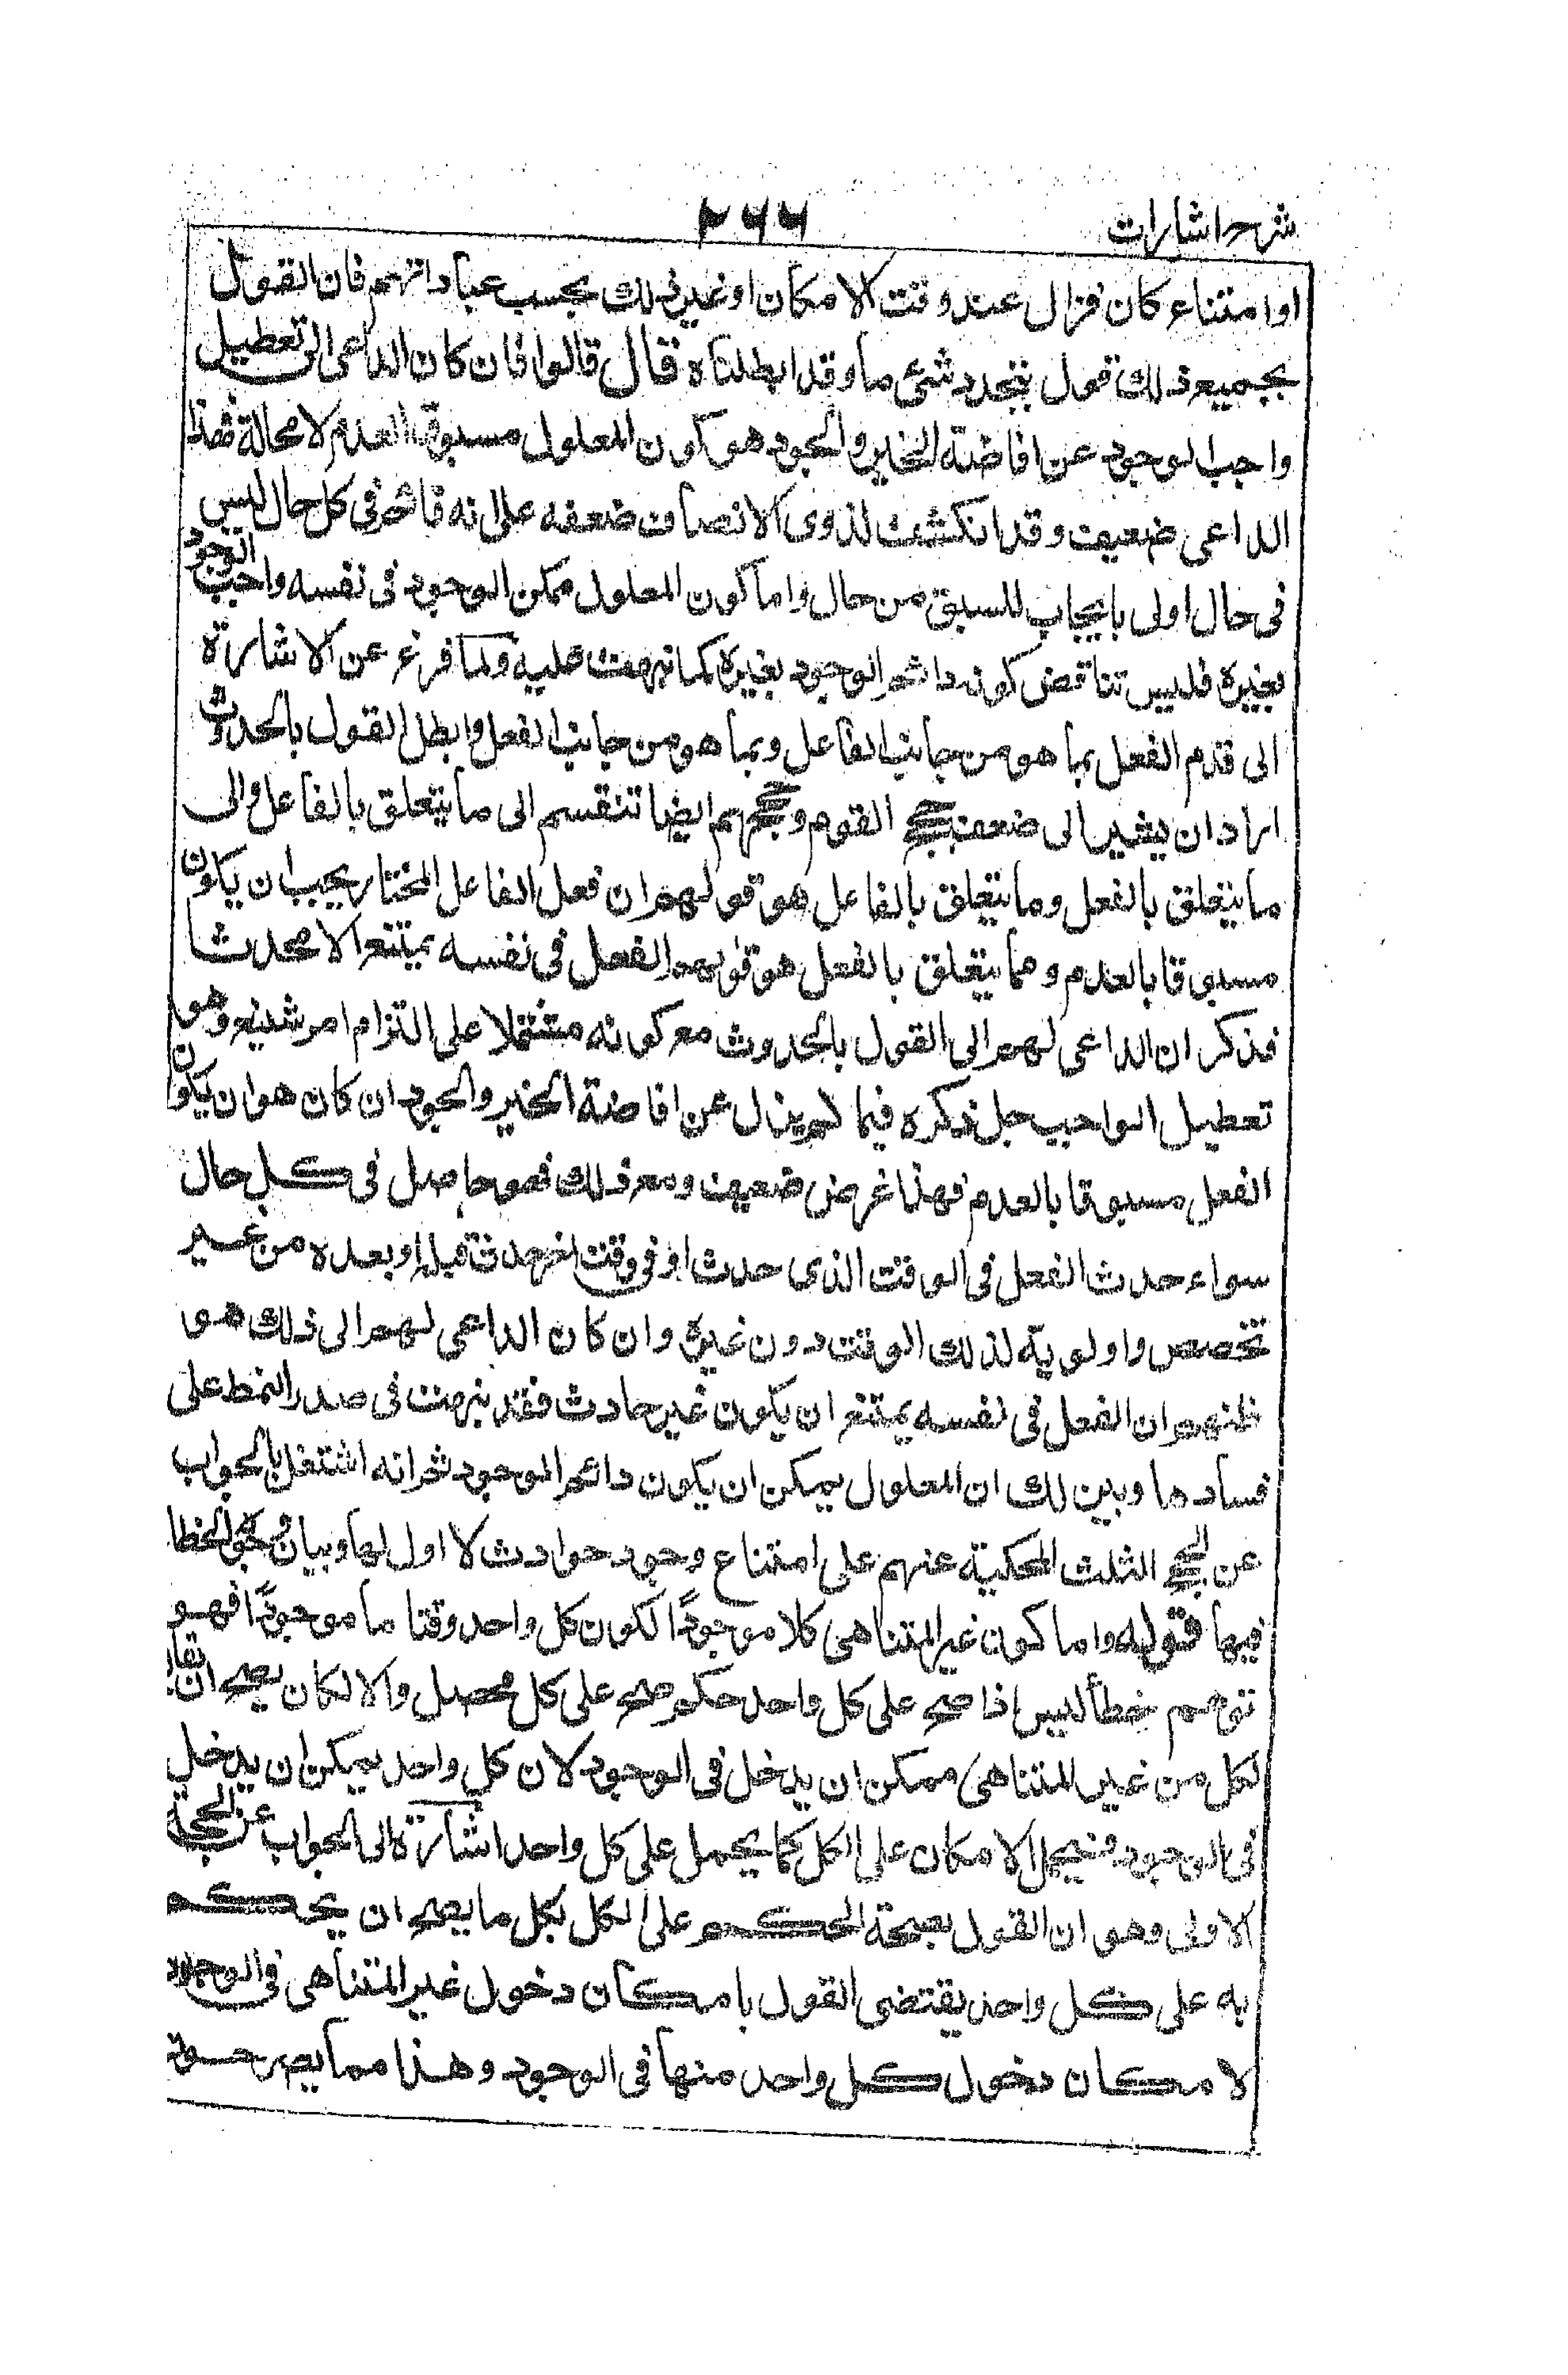 شرح اشارات
٢٦٦
او امتناع كان فزال عند وقت الامكان او غير ذلك بحسب عباداتهم فان القول
بجميع ذلك قول بتجدد شئ ما وقد ابطلناه قال قالوا فان كان الداعى الى تعطيل
واجب الوجود عن افاضة الخير والجود هو كون المعلول مسبوق العدم لا محالة فهذا
الداعى ضعيف وقد انكشف لذوى الانصاف ضعفه على انه قائم فى كل حال ليس
فى حال اولى بايجاب للسبق من حال واما كون المعلول ممكن الوجود فى نفسه واجب الوجود
بغيره فليس تناقض كونه دائم الوجود بغيره كما نبهت عليه ولما فرغ عن الاشارة
الى قدم الفعل بما هو من جانب الفاعل وبما هو من جانب الفعل وابطل القول بالحدوث
اراد ان يشير الى ضعف حجج القوم وحججهم ايضا تنقسم الى ما يتعلق بالفاعل والى
ما يتعلق بالفعل وما يتعلق بالفاعل هو قولهم ان فعل الفاعل المختار يجب ان يكون
مسبوقا بالعدم ومما يتعلق بالفعل هو قولهم الفعل فى نفسه يمتنع الا محدثا
فذكر ان الداعى لهم الى القول بالحدوث مع كونه مشتملا على التزام امر شنيع وهو
تعطيل الواجب جل ذكره فيما لم يزل عن افاضة الخير والجود ان كان هو ان يكون
الفعل مسبوقا بالعدم فهذا غرض ضعيف ومع ذلك فهو حاصل فى كل حال
سواء حدث الفعل فى الوقت الذى حدث او فى وقت اخر حدث قبله او بعده من غير
تخصص واولوية لذلك الوقت دون غيره وان كان الداعى لهم الى ذلك هو
ظنهم ان الفعل فى نفسه يمتنع ان يكون غير حادث فقد نبهت فى صدر النمط على
فسادها وبين لك ان المعلول يمكن ان يكون دائم الوجود ثم انه اشتغل بالجواب
عن الحجج الثلث المحكية عنهم على امتناع وجود حوادث لا اول لها وبيان وجوه الخطا
فيها قوله واما كون غير المتناهى كلا موجودًا لكون كل واحد وقتا ما موجودًا فهو
توهم خطأ ليس اذا صح على كل واحد حكم صح على كل محصل والا لكان يصح ان يقال
لكل من غير المتناهى ممكن ان يدخل فى الوجود لان كل واحد يمكن ان يدخل
فى الوجود فيحمل الامكان على الكل كما يحمل على كل واحد اشارة الى الجواب عن الحجة
الاولى وهو ان القول بصحة الحكم على الكل بكل ما يصح ان يحكم
به على كل واحد يقتضى القول بامكان دخول غير المتناهى فى الوجود
لامكان دخول كل واحد منها فى الوجود وهذا مما يصرحون